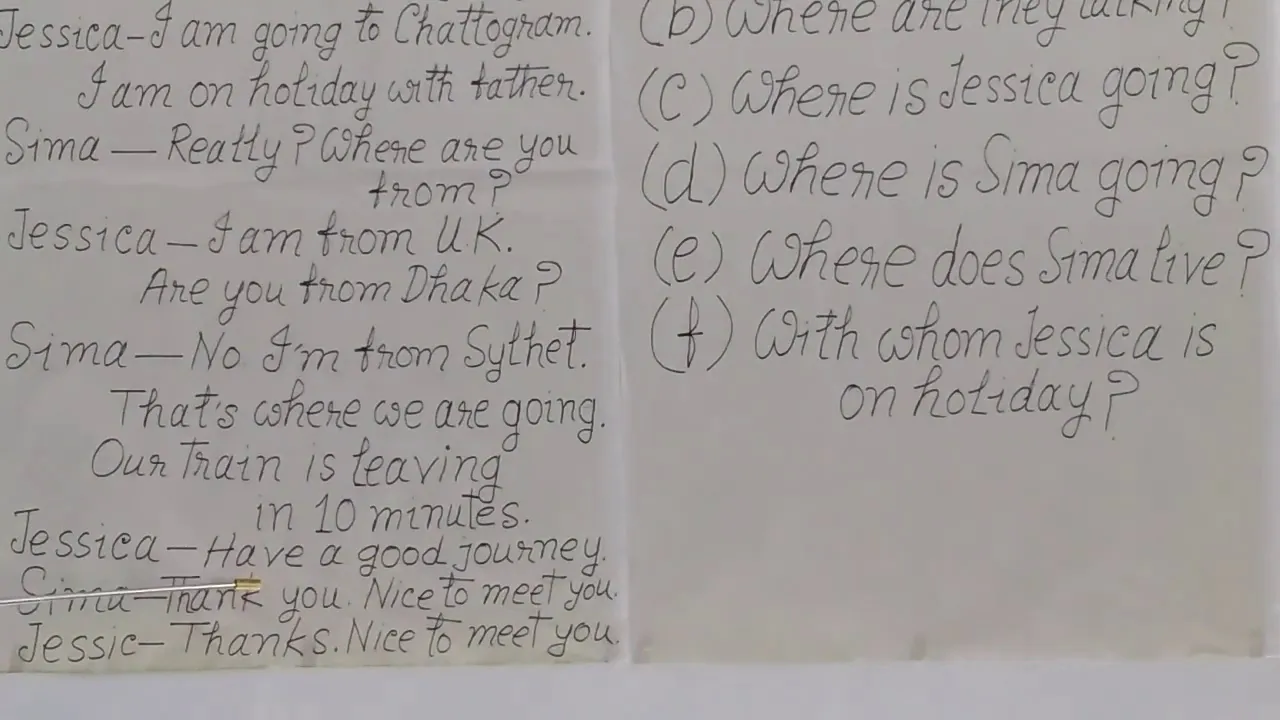 Jessica-I am going to Chattogram.
I am on holiday with father.
Sima — Really? Where are you
from?
Jessica — I am from U.K.
Are you from Dhaka?
Sima — No I'm from Sylhet.
That's where we are going.
Our Train is leaving
in 10 minutes.
Jessica — Have a good journey.
Sima — Thank you. Nice to meet you.
Jessic — Thanks. Nice to meet you.
(b) Where are they talking?
(c) Where is Jessica going?
(d) Where is Sima going?
(e) Where does Sima live?
(f) With whom Jessica is
on holiday?